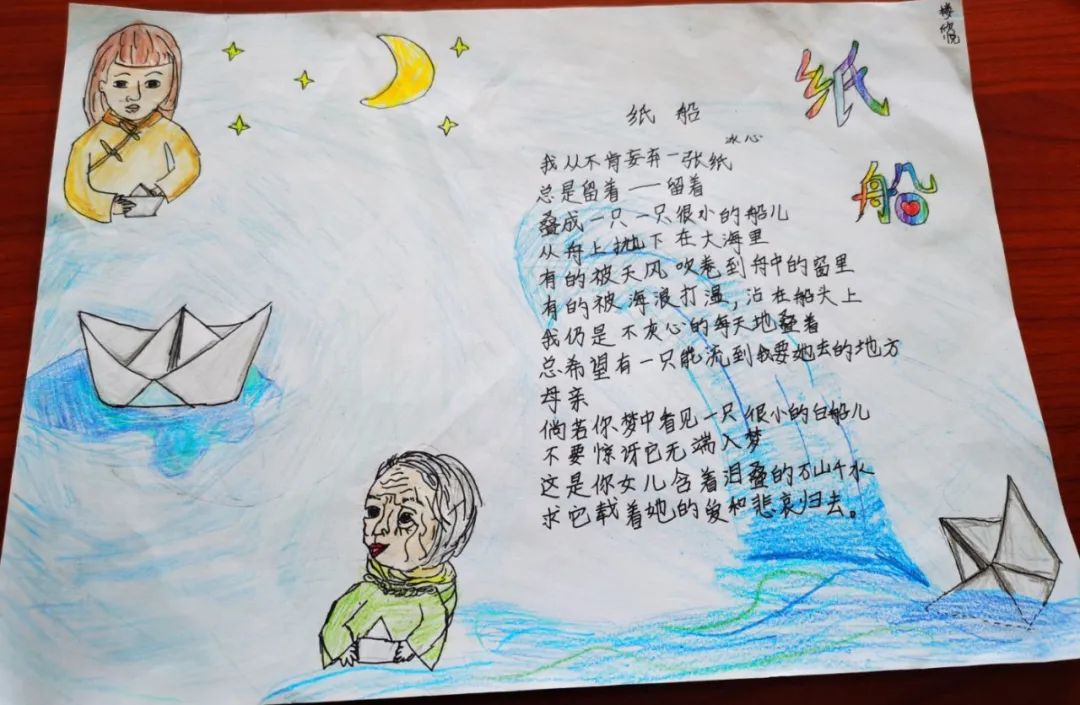 楼
纸
船
纸 船
冰心
我从不肯妄弃一张纸
总是留着——留着
叠成一只一只很小的船儿
从舟上抛下在大海里
有的被天风吹卷到舟中的窗里
有的被海浪打湿,沾在船头上
我仍是不灰心的每天地叠着
总希望有一只能流到我要她去的地方
母亲
倘若你梦中看见一只很小的白船儿
不要惊讶它无端入梦
这是你女儿含着泪叠的万山千水
求它载着她的爱和悲哀归去。